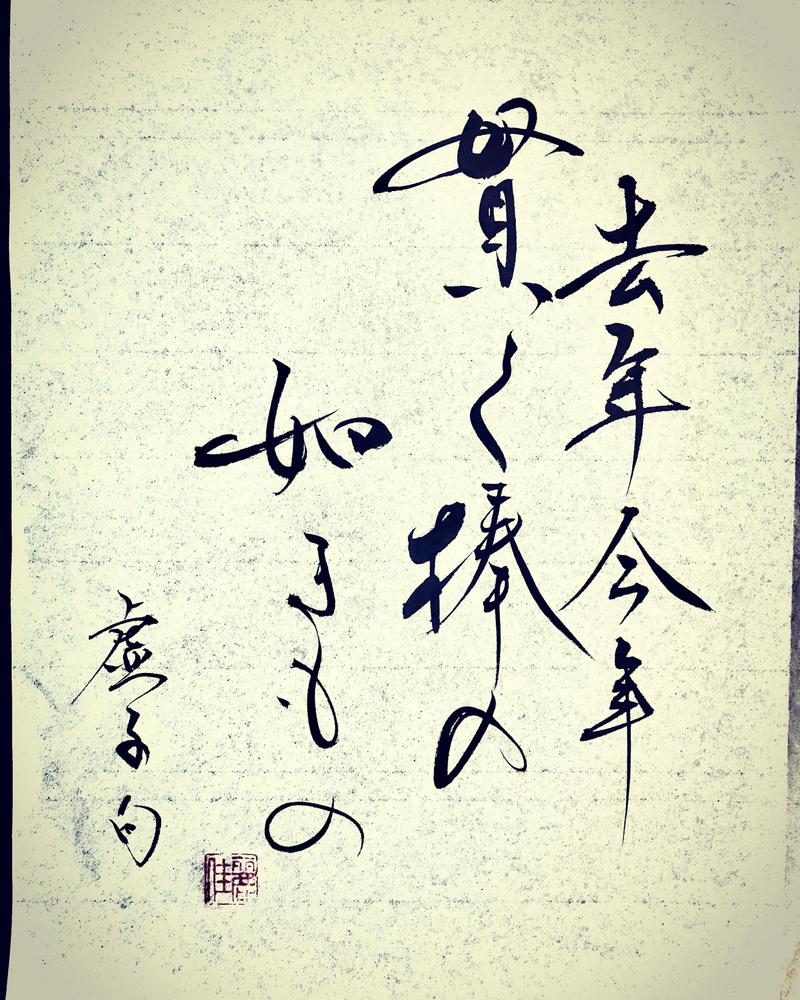 去年今年
貫く棒の
如きもの
虚子句